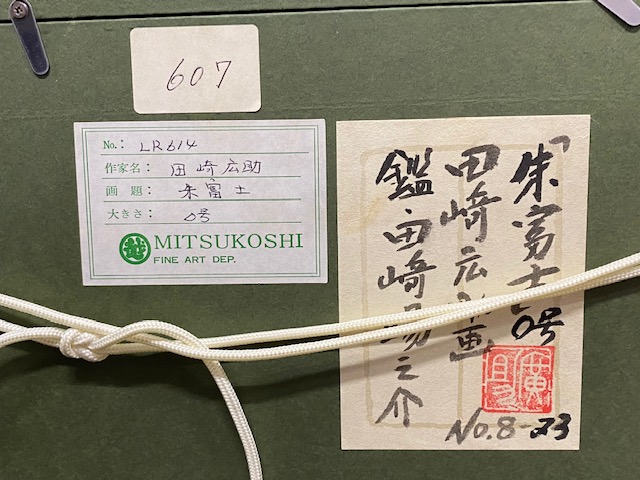 607
No.: LR614
作家名: 田崎広助
画題: 朱富士
大きさ: 0号
MITSUKOSHI
FINE ART DEP.
「朱富士」0号
田崎広助画
鑑 田崎 之介
廣助
No.8-23